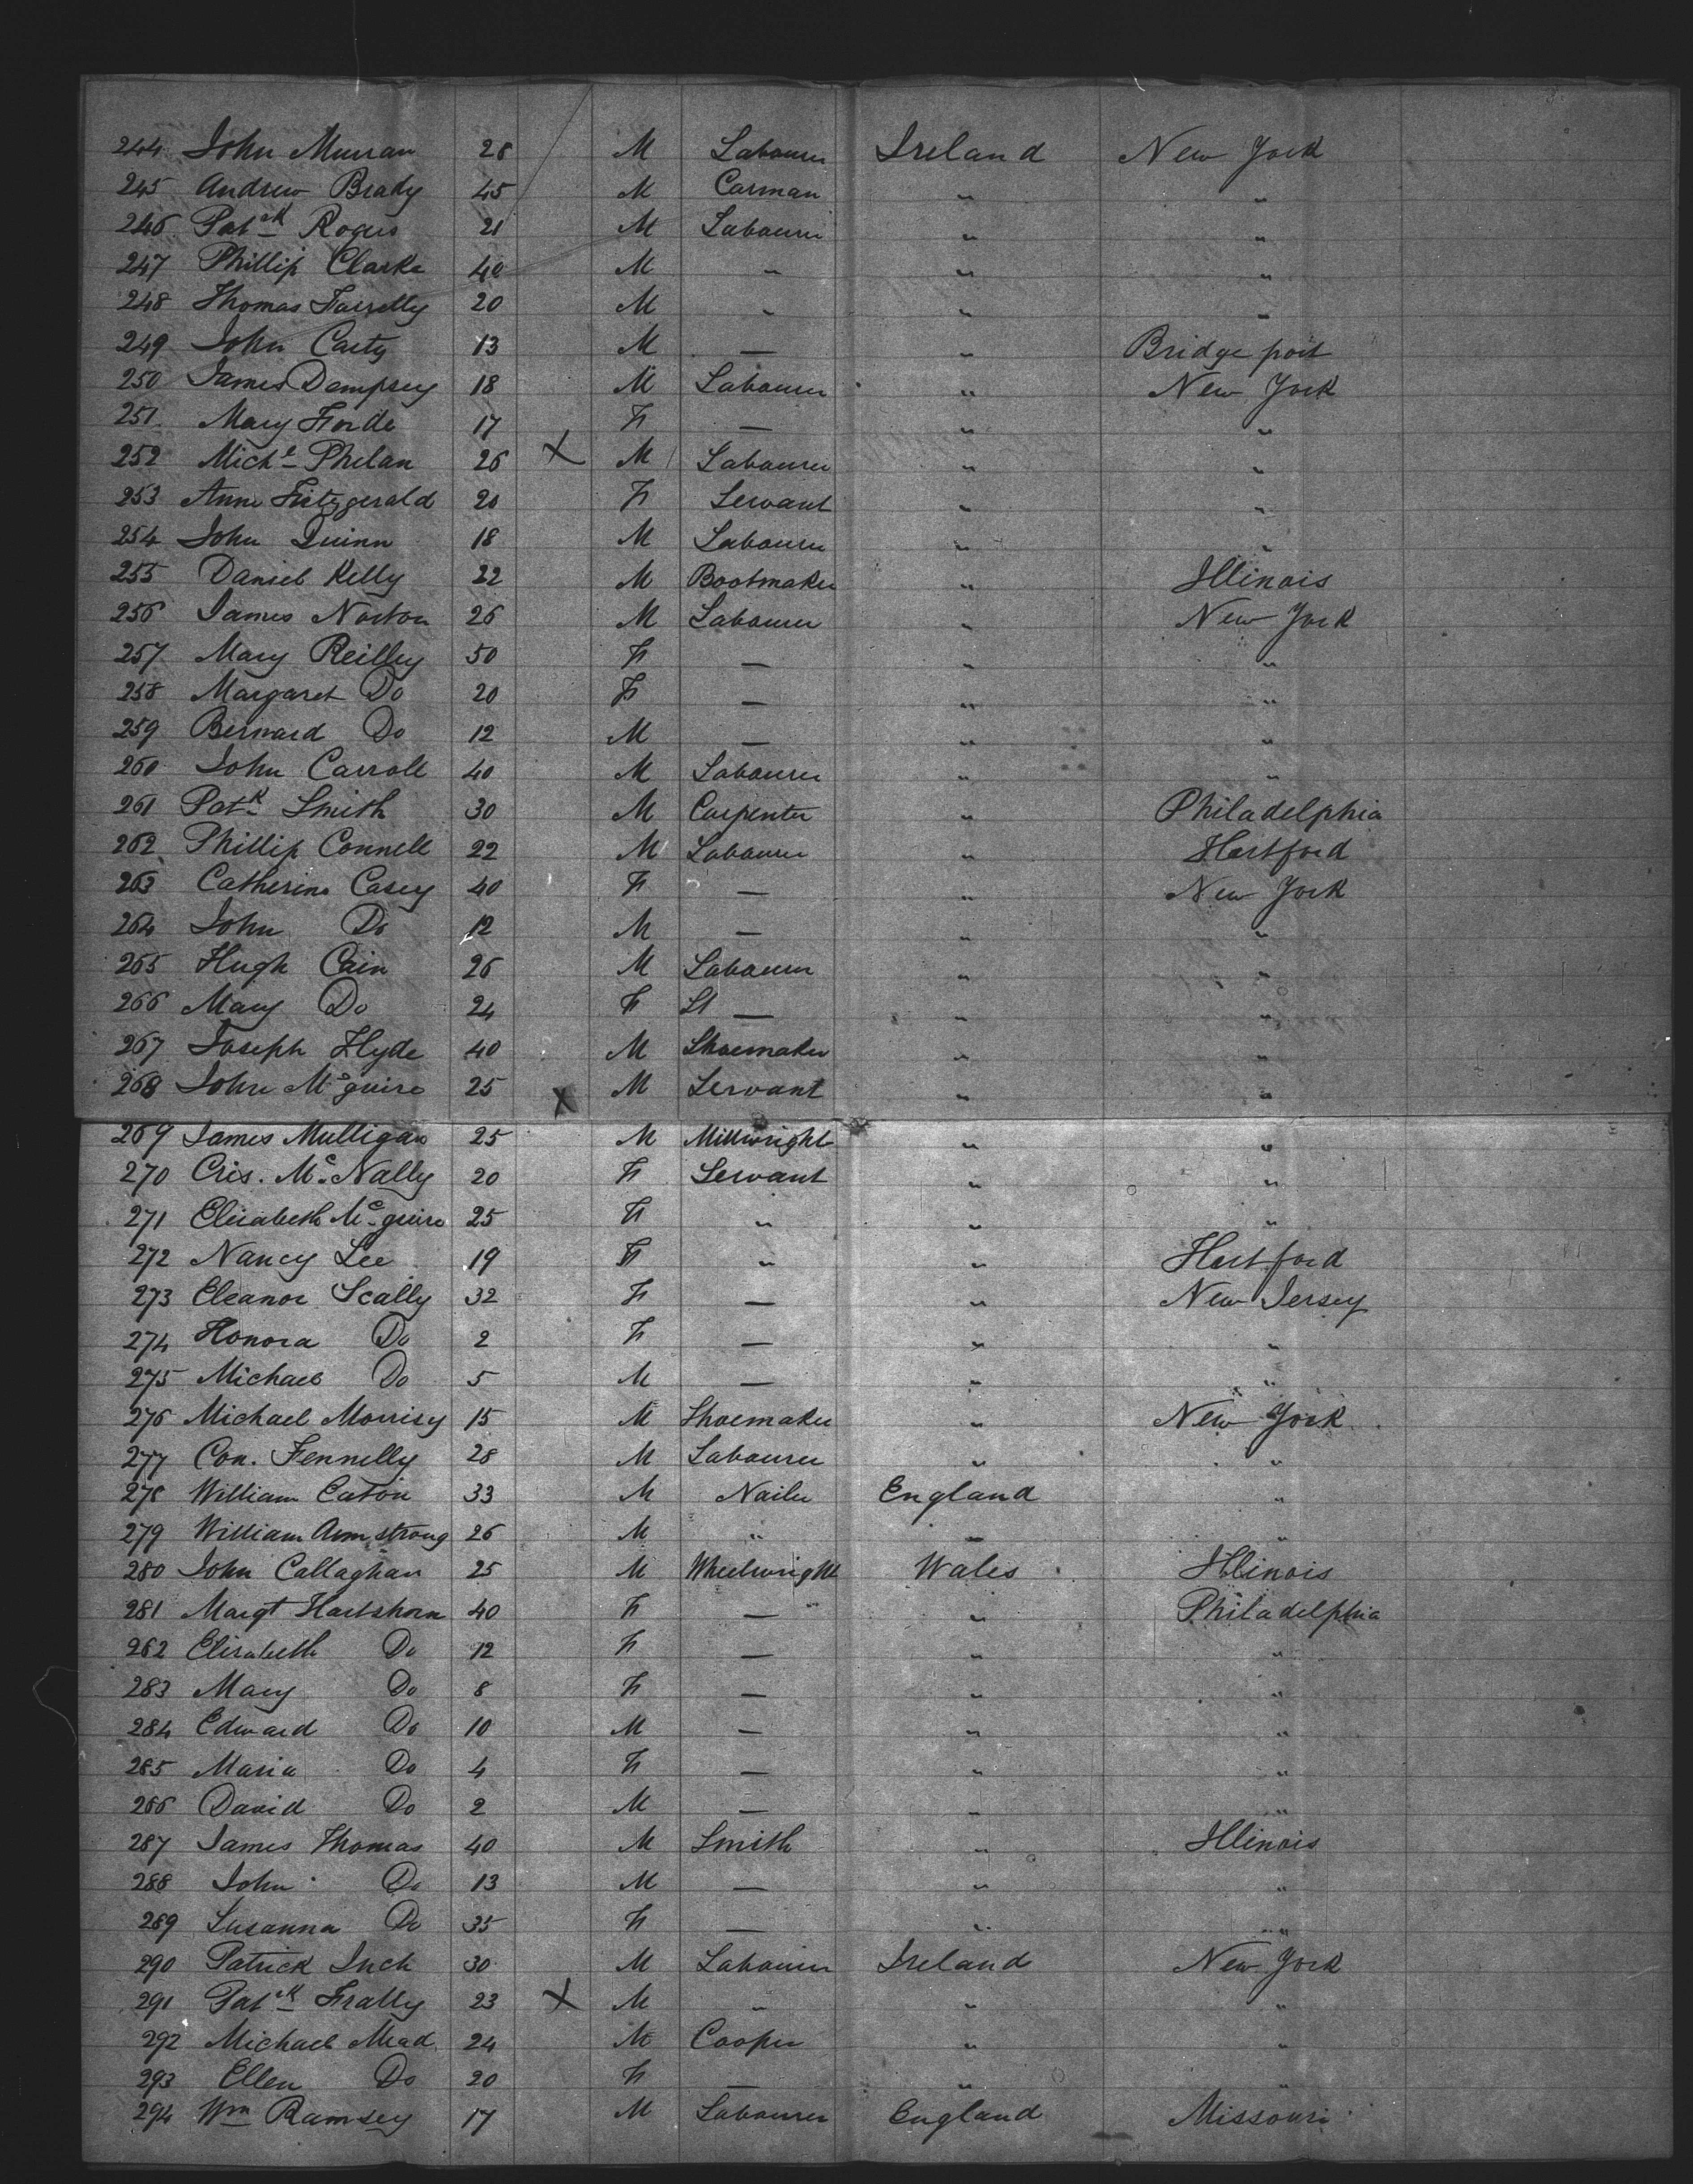 244 John Murran 28 M Labourer Ireland New York
245 Andrew Brady 45 M Carman " "
246 Patk Rogers 21 M Labourer " "
247 Phillip Clarke 40 M " " "
248 Thomas Farrelly 20 M " " "
249 John Carty 13 M — " Bridgeport
250 James Dempsey 18 M Labourer " New York
251 Mary Forde 17 F — " "
252 Michl Phelan 26 X M Labourer " "
253 Ann Fitzgerald 20 F Servant " "
254 John Quinn 18 M Labourer " "
255 Daniel Kelly 22 M Bootmaker " Illinois
256 James Norton 26 M Labourer " New York
257 Mary Reilley 50 F — " "
258 Margaret Do 20 F — " "
259 Bernard Do 12 M — " "
260 John Carroll 40 M Labourer " "
261 Patk Smith 30 M Carpenter " Philadelphia
262 Phillip Connell 22 M Labourer " Hartford
263 Catherine Casey 40 F — " New York
264 John Do 12 M — " "
265 Hugh Cain 26 M Labourer " "
266 Mary Do 24 F — " "
267 Joseph Hyde 40 M Shoemaker " "
268 John Mcguire 25 X M Servant " "
269 James Mulligan 25 M Millwright " "
270 Cris. McNally 20 F Servant " "
271 Elizabeth Mcguire 25 F " " "
272 Nancy Lee 19 F " " Hartford
273 Eleanor Scally 32 F — " New Jersey
274 Honora Do 2 F — " "
275 Michael Do 5 M — " "
276 Michael Morrisy 15 M Shoemaker " New York
277 Con. Fennelly 28 M Labourer " "
278 William Eaton 33 M Nailer England "
279 William Armstrong 26 M " " "
280 John Callaghan 25 M Wheelwright Wales Illinois
281 Margt Hartshorn 40 F — " Philadelphia
282 Elizabeth Do 12 F — " "
283 Mary Do 8 F — " "
284 Edward Do 10 M — " "
285 Maria Do 4 F — " "
286 David Do 2 M — " "
287 James Thomas 40 M Smith " Illinois
288 John Do 13 M — " "
289 Susanna Do 35 F — " "
290 Patrick Inch 30 M Labourer Ireland New York
291 Patk Frally 23 X M " " "
292 Michael Mead 24 M Cooper " "
293 Ellen Do 20 F — " "
294 Wm Ramsey 17 M Labourer England Missouri